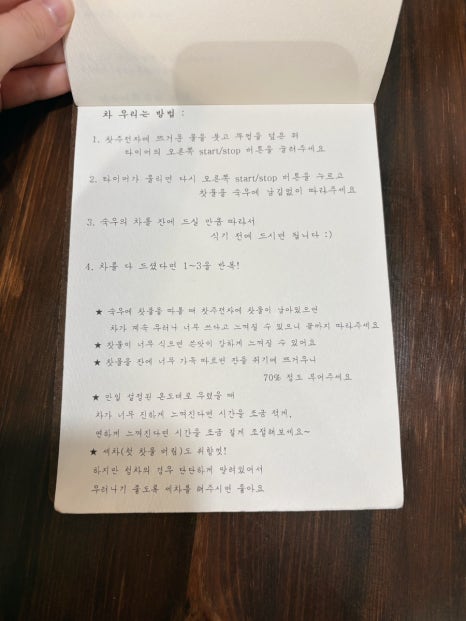 차 우리는 방법 :
1. 찻주전자에 뜨거운 물을 붓고 뚜껑을 덮은 뒤
타이머의 오른쪽 start/stop 버튼을 눌러주세요
2. 타이머가 울리면 다시 오른쪽 start/stop 버튼을 누르고
찻물을 숙우에 남김없이 따라주세요
3. 숙우의 차를 잔에 드실 만큼 따라서
식기 전에 드시면 됩니다 :)
4. 차를 다 드셨다면 1~3을 반복!
★ 숙우에 찻물을 따를 때 찻주전자에 찻물이 남아있으면
차가 계속 우러나 너무 쓰다고 느껴질 수 있으니 끝까지 따라주세요
★ 찻물이 너무 식으면 쓴맛이 강하게 느껴질 수 있어요
★ 찻물을 잔에 너무 가득 따르면 잔을 쥐기에 뜨거우니
70% 정도 부어주세요
★ 만일 설정된 온도대로 우렸을 때
차가 너무 진하게 느껴진다면 시간을 조금 적게,
연하게 느껴진다면 시간을 조금 길게 조절해보세요~
★ 세차(첫 찻물 버림)도 취향껏!
하지만 섬차의 경우 단단하게 말려있어서
우러나기 좋도록 세차를 해주시면 좋아요